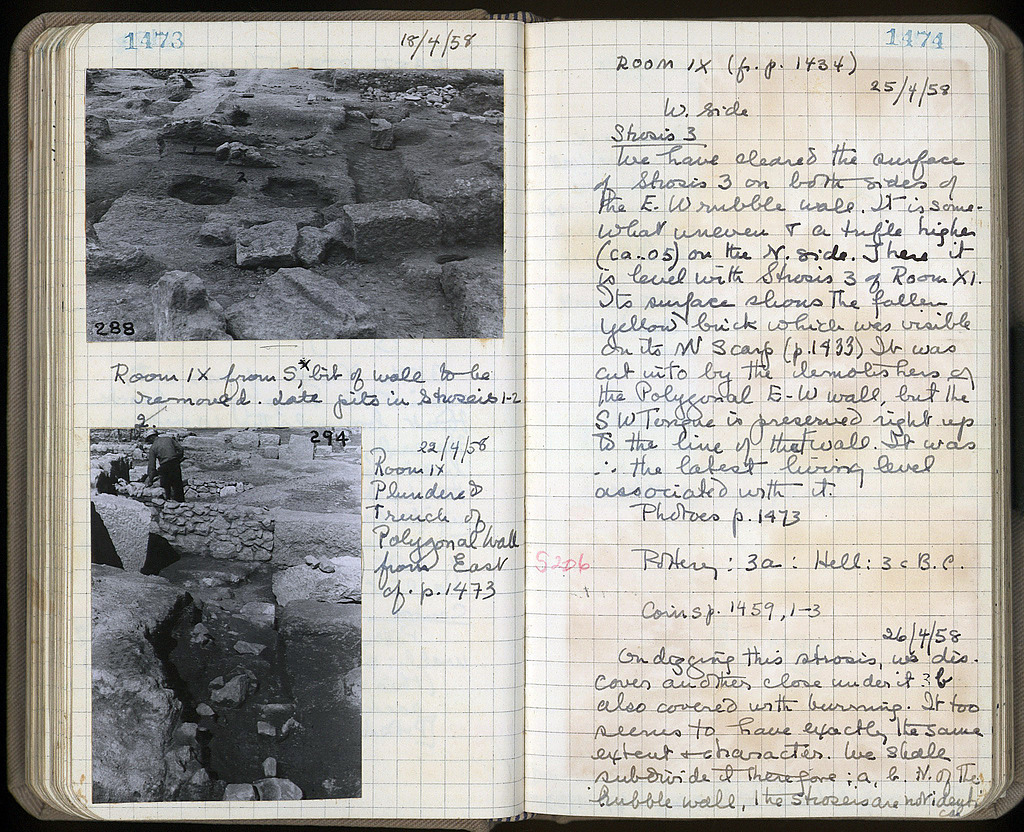 1473
18/4/58
2
288
Room IX from S, * bit of wall to be
removed. Late pits in Stroseis 1-2
2
294
22/4/58
Room IX
Plundered
Trench of
Polygonal Wall
from East
cf. p. 1473
1474
Room IX (fr. p. 1434)
25/4/58
W. side
Strosis 3
We have cleared the surface
of Strosis 3 on both sides of
the E-W rubble wall. It is some-
what uneven & a trifle higher
(ca .05) on the N. side. There it
is level with Strosis 3 of Room XI.
Its surface shows the fallen
yellow brick which was visible
on its W Scarp (p. 1433) It was
cut into by the demolishers of
the Polygonal E-W wall, but the
SW Tongue is preserved right up
to the line of that wall. It was
∴ the latest living level
associated with it.
Photoes p. 1473
S206
Pottery: 3a: Hell: 3 c B.C.
Coins p. 1459, 1-3
26/4/58
On digging this strosis, we dis-
cover another close under it 3b
also covered with burning. It too
seems to have exactly the same
extent & character. We shall
subdivide it therefore: a, b. N. of the
Rubble wall, the stroseis are not identi
cal